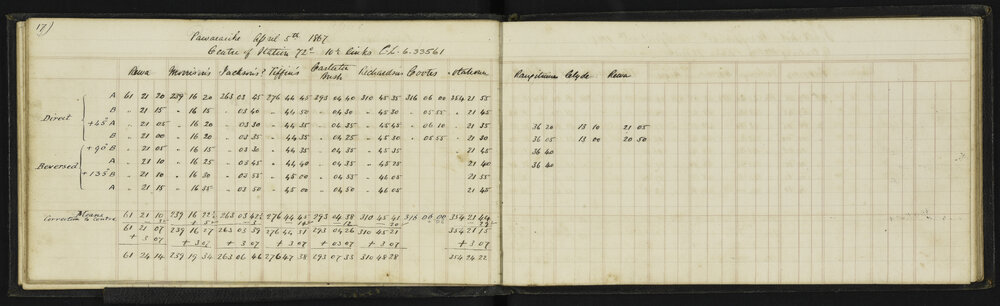 17)
April 5th 1867
Centre of Station 72° 10½ links C.L. 6.33561
Rewa Morrison's Jackson's Tiffin's Bush Richardson's Coote's Otahoua Rangitumau Clyde Rewa
A 61 21 20 239 16 20 263 03 45 276 44 45 293 04 40 310 45 35 316 06 00 354 21 55
B " 21 15 " 16 15 " 03 40 " 44 50 " 04 30 " 45 30 " 05 55 " 21 45
Direct
+45° A " 21 05 " 16 20 " 03 30 " 44 35 " 04 35 " 45 45 " 06 10 " 21 35 36 20 13 10 21 05
B " 21 00 " 16 20 " 03 35 " 44 35 " 04 25 " 45 30 " 05 55 " 21 30 36 05 13 00 20 50
+90° B " 21 05 " 16 15 " 03 30 " 44 35 " 04 35 " 45 35 21 45 36 40
A " 21 10 " 16 25 " 03 45 " 44 40 " 04 35 " 45 25 21 40 36 40
Reversed
+135° B " 21 10 " 16 30 " 03 55 " 45 00 " 04 55 " 46 05 21 55
A " 21 15 " 16 35 " 03 50 " 45 00 " 04 50 " 46 05 21 45
Means 61 21 10 239 16 22½ 263 03 42½ 276 44 45 293 04 38 310 45 41 316 06 00 354 21 44
Correction to centre
61 21 07 239 16 27 263 03 39 276 44 31 293 04 26 310 45 21 354 21 15
+ 3 07 + 3 07 + 3 07 + 3 07 + 03 07 + 3 07 + 3 07
61 24 14 239 19 34 263 06 46 276 47 38 293 07 33 310 48 28 354 24 22